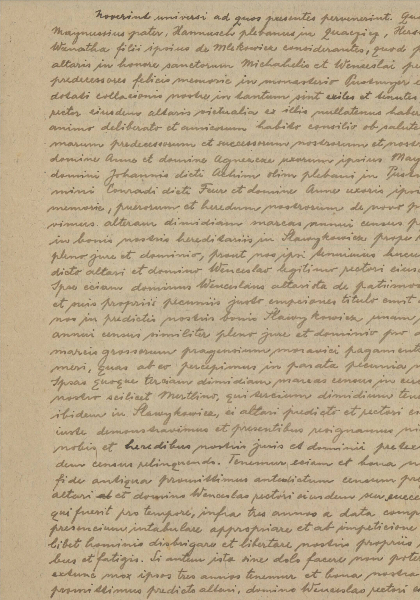 Noverint universi ad quos presentes pervenerint. Quod
Magnussius pater, Hannussius plebanus in
filii ipsius de Mlekowicz considerantes, quod
altaris in honore sanctorum Michahelis et Wenceslai
predecessores felicis memorie in monasterio
dotati collacionis nostre in tantum sint exiles et tenues
rector eiusdem altaris victualia ex illis nullatenus
animo deliberato et amicorum habito consilio ob salutem
marum predecessorum et successorum nostrorum et
domine Anne et domine Agnetis uxorum ipsius
domini Johannis dicti olim plebani in
mini Conradi dicti et domine Anne uxoris
memorie, puerorum et heredum nostrorum de novo
vimus alteram dimidiam marcas annui census
in bonis nostris hereditariis in Slawykowicz prope
pleno jure et dominio, prout nos ipsi tenuimus
dicto altari et domino Wenceslao legitimo rectori eius
Ipse eciam dominus Wenceslaus altarista de
et suis propriis pecuniis justo empcionis titulo emit
nos in predictis nostris bonis Slawykowicz unam
annui census similiter pleno jure et dominio pro
marcis grossorum pragensium moravici pagamenti
meri, quas ab eo percepimus in parata pecunia
Ipsas quoque terciam dimidiam marcas census in
nostro scilicet qui terciam dimidiam
ibidem in Slawykowicz, ei altari predicto et rectori
iuste demonstravimus et presentibus resignamus
nobis et heredibus nostris juris et dominii
dem census relinquendo. Tenemur eciam et bona
fide antiqua promittimus antedictum censum
altari et domino Wenceslao rectori eiusdem seu
qui fuerit pro tempore, infra tres annos a data
presencium intabulare appropriare et ab impeticione
libet hominis disbrigare et libertare, nostris propriis
bus et fatigis. Si autem ista sine dolo facere non
extunc mox ipsos tres annos tenemur et bona nostra
promittimus predicto altari, domino Wenceslao rectori